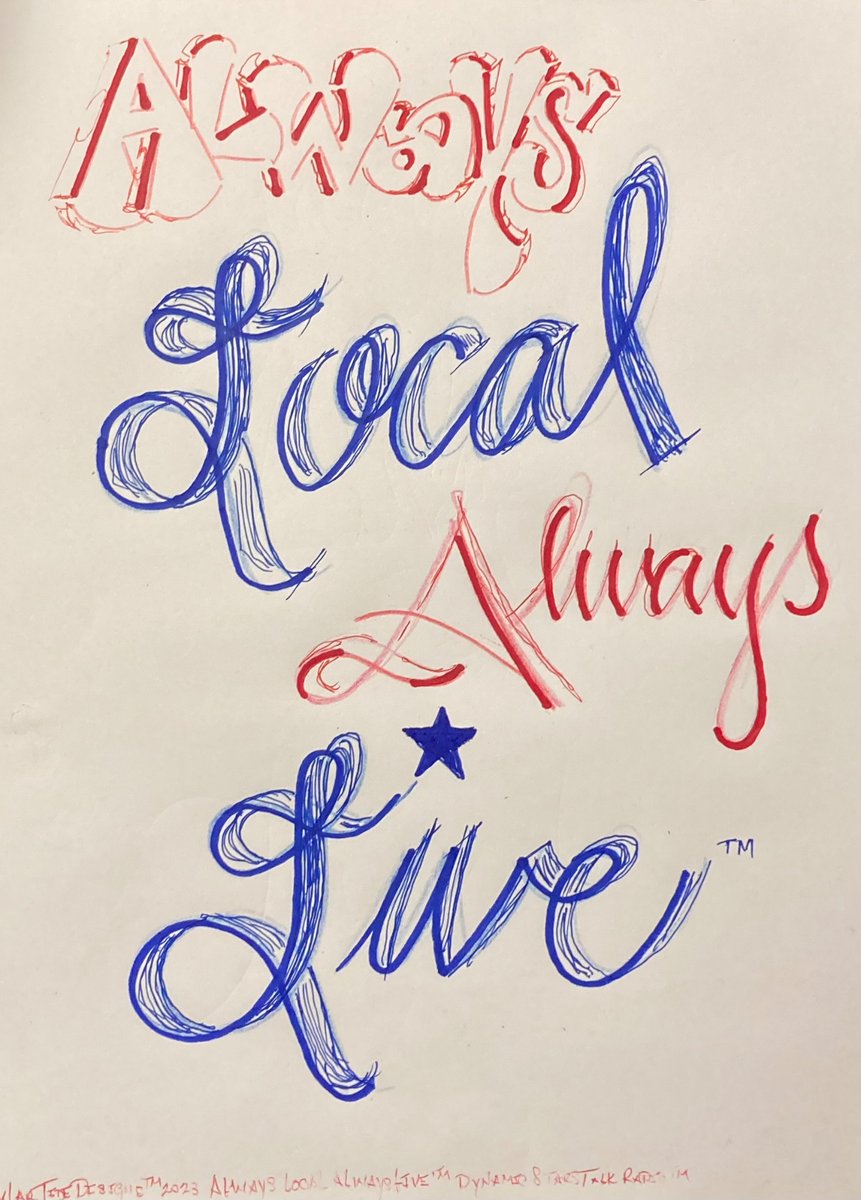 Always
Local
Always
Live™
2023 Always Local Always Live™ Dynamic Stars Talk Radio™